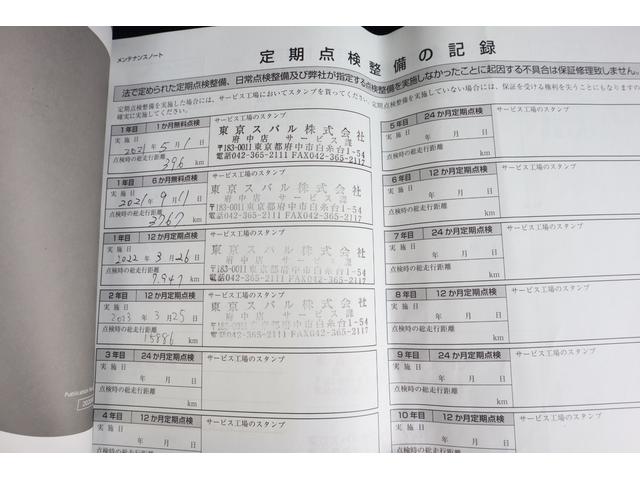 メンテナンスノート
定期点検整備の記録
法で定められた定期点検整備、日常点検整備及び弊社が指定する点検整備を実施しなかったことに起因する不具合は保証修理致しません。
定期点検整備を実施した場合には、サービス工場においてスタンプを貰ってください。定期点検整備を実施していない場合には、保証を受ける権利を失うことにもなりますの
確実に実施してください。
1年目 1か月無料点検
サービス工場のスタンプ
実施日
2021年5月1日
点検時の総走行距離
396 km
東京スバル株式会社
府中店 サービス課
〒183-0011東京都府中市白糸台1-54
電話042-365-2111 FAX042-365-2117
1年目 6か月無料点検
サービス工場のスタンプ
実施日
2021年9月11日
点検時の総走行距離
3767 km
東京スバル株式会社
府中店 サービス課
〒183-0011東京都府中市白糸台1-54
電話042-365-2111 FAX042-365-2117
1年目 12か月定期点検
サービス工場のスタンプ
実施日
2022年3月26日
点検時の総走行距離
7,947 km
東京スバル株式会社
府中店 サービス課
〒183-0011東京都府中市白糸台1-54
電話042-365-2111 FAX042-365-2117
2年目 12か月定期点検
サービス工場のスタンプ
実施日
2023年3月25日
点検時の総走行距離
15886 km
東京スバル株式会社
府中店 サービス課
〒183-0011東京都府中市白糸台1-54
電話042-365-2111 FAX042-365-2117
3年目 24か月定期点検
サービス工場のスタンプ
実施日
年 月 日
点検時の総走行距離
km
4年目 12か月定期点検
サービス工場のスタンプ
実施日
年 月 日
点検時の総走行距離
km
5年目 24か月定期点検
サービス工場のスタンプ
実施日
年 月 日
点検時の総走行距離
km
6年目 12か月定期点検
サービス工場のスタンプ
実施日
年 月 日
点検時の総走行距離
km
7年目 24か月定期点検
サービス工場のスタンプ
実施日
年 月 日
点検時の総走行距離
km
8年目 12か月定期点検
サービス工場のスタンプ
実施日
年 月 日
点検時の総走行距離
km
9年目 24か月定期点検
サービス工場のスタンプ
実施日
年 月 日
点検時の総走行距離
km
10年目 12か月定期点検
サービス工場のスタンプ
実施日
年 月 日
点検時の総走行距離
km